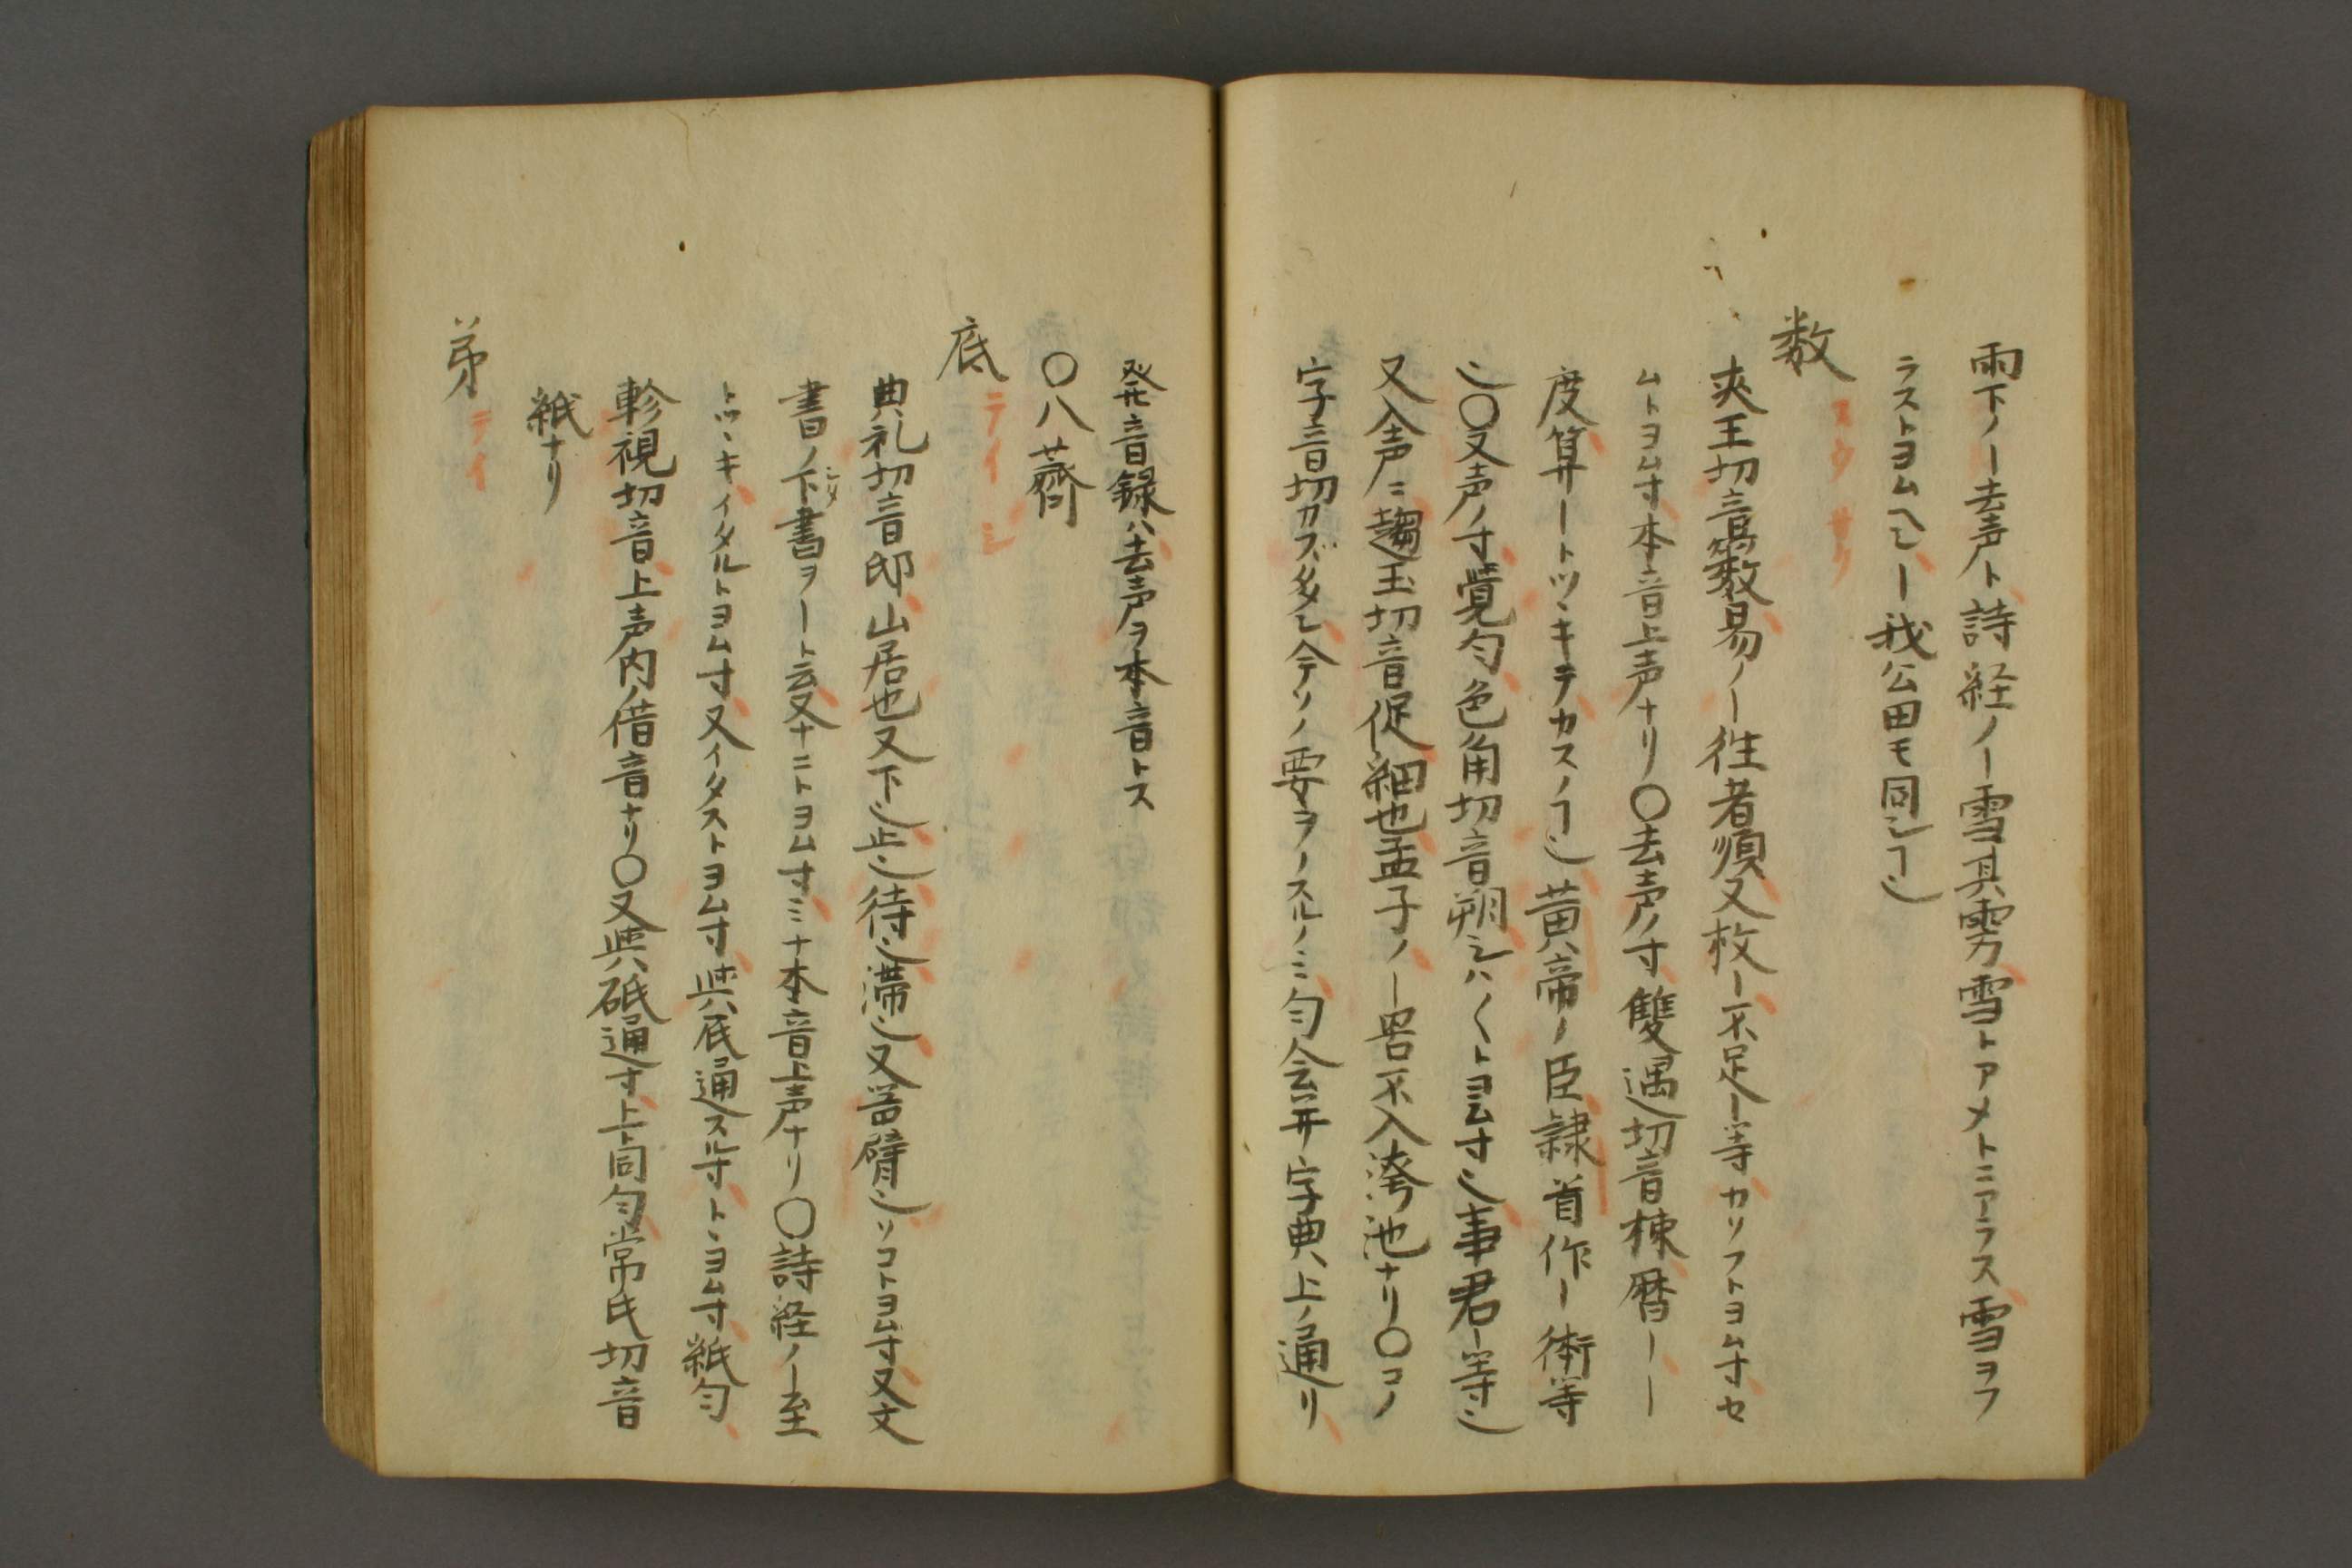 雨下ノー去声ト詩経ノー雪其雱雪トアメトニアラス雪ヲフ
ラストヨムヘシー我公田モ同シ
数 スウ サク
爽主切音籔易ノー往者順又枚ー不足ー等カソフトヨム寸セ
ムトヨム寸本音上声ナリ〇去声ノ寸雙遇切音捒暦ーー
度算ートツヽキテカスノヿ也黄帝ノ臣隷首作ー術等
也〇又声ノ寸覚匀色角切音朔シハ〱トヨム寸也事君ー等也
又入声ニ趨玉切音促細也孟子ノー罟不入洿池ナリ〇コノ
字音切カズ多シ今ソノ要ヲノスルノミ匀会并字典上ノ通リ
発音録ハ去声ヲ本音トス
〇八薺
底 テイ シ
典礼切音邸山居也又下也止也待也滞也又器臂也ソコトヨム寸又文
書ノ下書ヲート云又ナニトヨム寸ミナ本音上声ナリ〇詩経ノー至
トツヽキイタルトヨム寸又イタストヨム寸與厎通スル寸トヽヨム寸紙匀
軫視切音上声内ノ借音ナリ〇又與砥通寸上同匀常氏切音
紙ナリ
弟 テイ